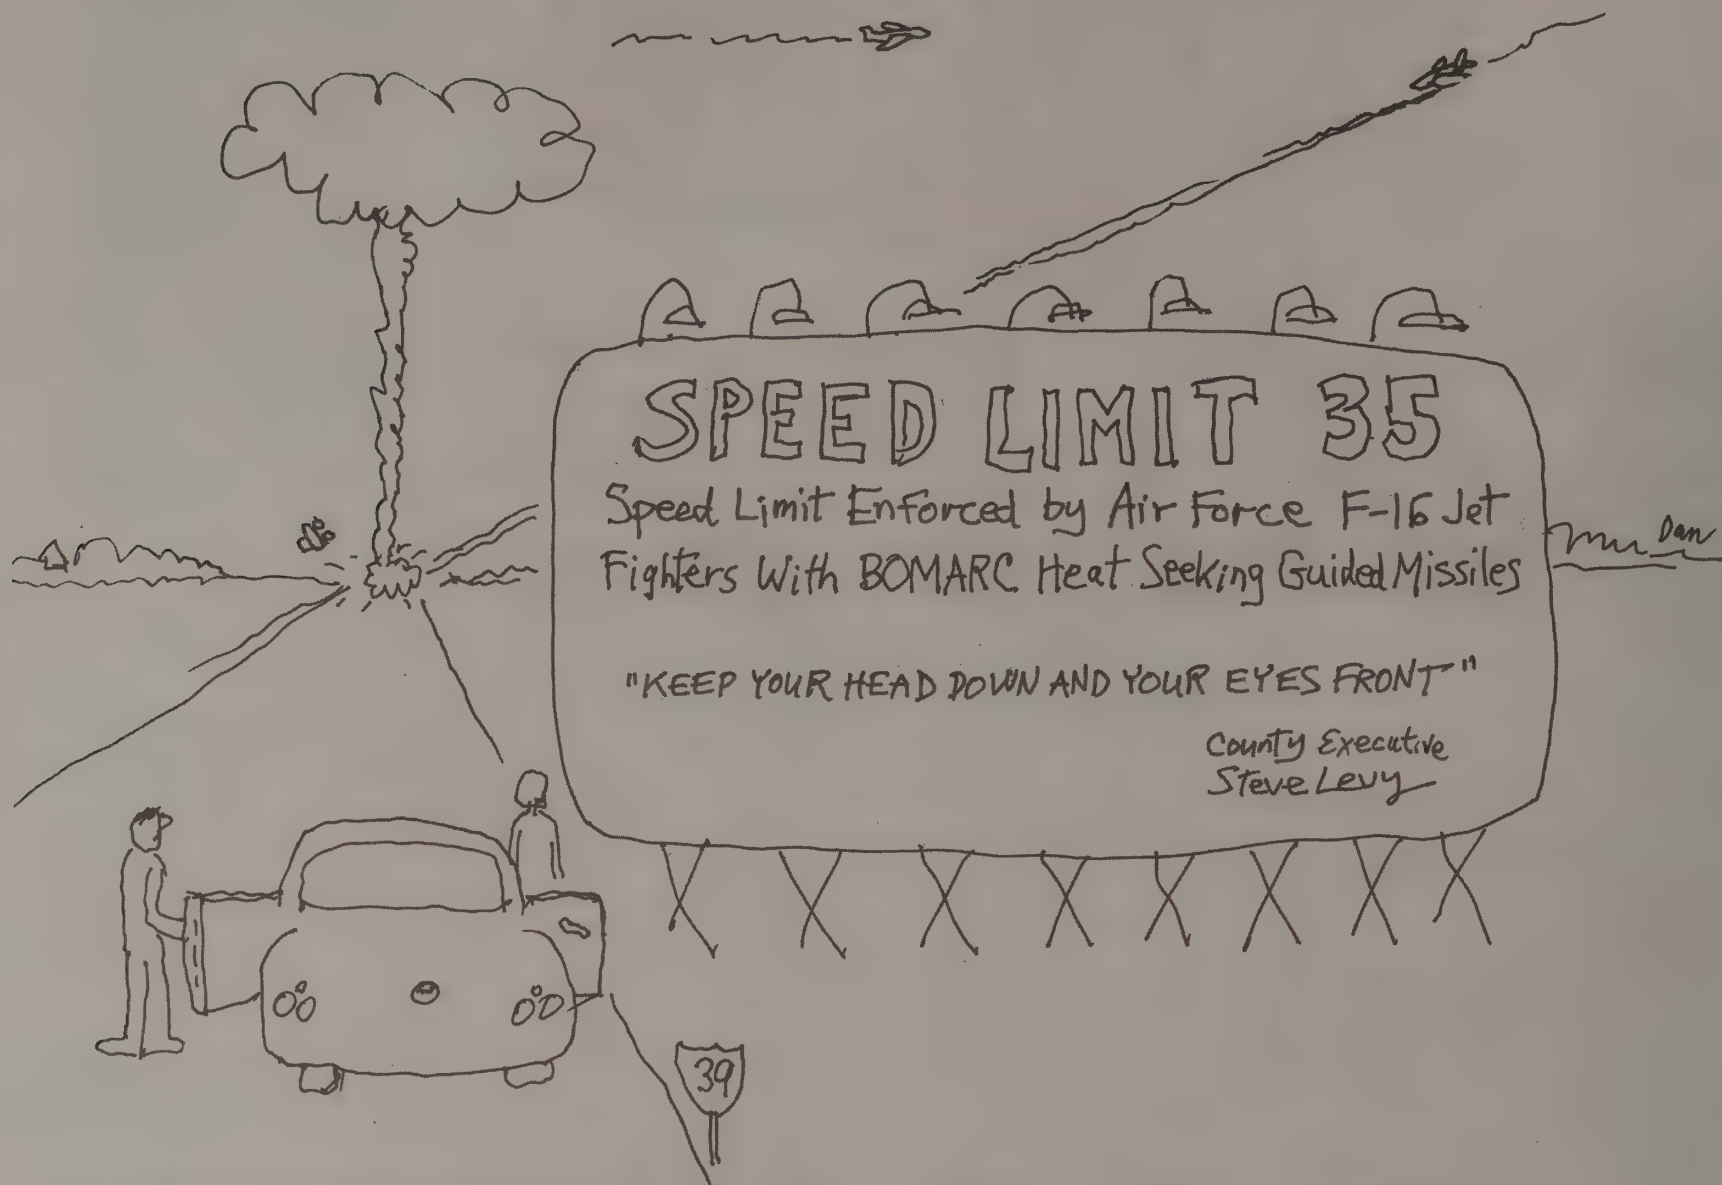 SPEED LIMIT 35
Speed Limit Enforced by Air Force F-16 Jet
Fighters With BOMARC Heat Seeking Guided Missiles
"KEEP YOUR HEAD DOWN AND YOUR EYES FRONT"
County Executive
Steve Levy
Dan
39